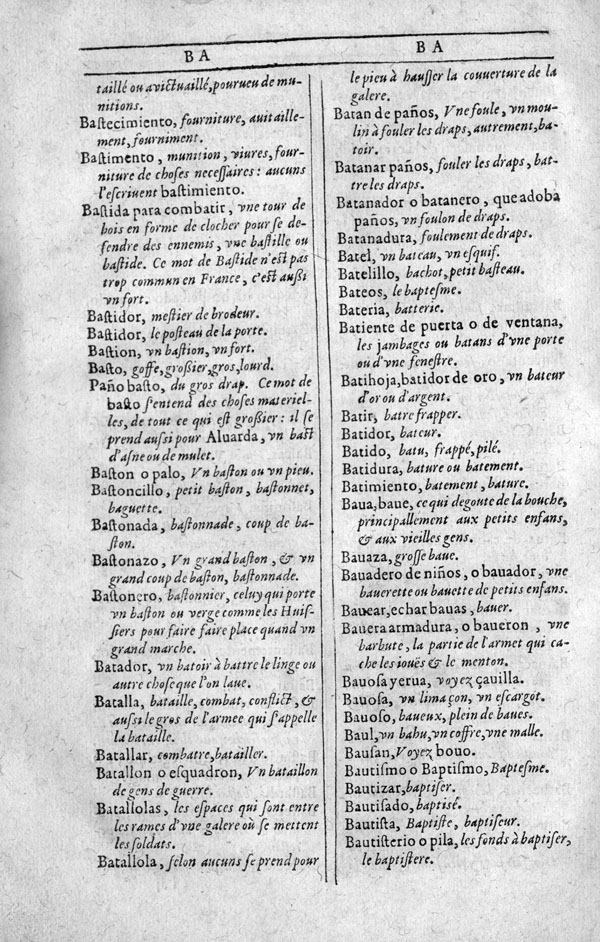 BA
taillé ou avictuaillé, pourueu de mu-
nitions.
Baſtecimiento, fourniture, auitaille-
ment, fourniment.
Baſtimento, munition, viures, four-
niture de choses neceſſaires: aucuns
l'eſcriuent baſtimiento.
Baſtida para combatir, vne tour de
bois en forme de clocher pour ſe de-
fendre des ennemis, vne baſtille ou
baſtide. Ce mot de Baſtide n'eſt pas
trop commun en France, c'eſt auſſi
vn fort.
Baſtidor, meſtier de brodeur.
Baſtidor, le poſteau de la porte.
Baſtion, vn baſtion, vn fort.
Baſto, goffe, groſsier, gros, lourd.
Paño baſto, du gros drap. Ce mot de
baſto s'entend des choſes materiel-
les, de tout ce qui eſt groſsier: il ſe
prend auſsi pour Aluarda, vn baſt
d'aſne ou de mulet.
Baſton o palo, Vn baſton ou vn pieu.
Baſtoncillo, petit baſton, baſtonnet,
baguette.
Baſtonada, baſtonnade, coup de ba-
ſton.
Baſtonazo, Vn grand baſton, & vn
grand coup de baſton, baſtonnade.
Baſtonero, baſtonnier, celuy qui porte
vn baſton ou verge comme les Huiſ-
ſiers pour faire faire place quand vn
grand marche.
Batador, vn batoir à battre le linge ou
autre choſe que l'on laue.
Batalla, bataille, combat, conflict, &
auſsi le gros de l'armee qui s'appelle
la bataille.
Batallar, combatre, batailler.
Batallon o eſquadron, Vn bataillon
de gens de guerre.
Batallolas, les eſpaces qui ſont entre
les rames d'vne galere où ſe mettent
les ſoldats.
Batallola, ſelon aucuns ſe prend pour
BA
le pieu à hauſſer la couuerture de la
galere.
Batan de paños, Vne foule, vn mou-
lin à fouler les draps, autrement, ba-
toir.
Batanar paños, fouler les draps, bat-
tre les draps.
Batanador o batanero, que adoba
paños, vn foulon de draps.
Batanadura, foulement de draps.
Batel, vn bateau, vn eſquif.
Batelillo, bachot, petit baſteau.
Bateos, le bapteſme.
Bateria, batterie.
Batiente de puerta o de ventana,
les jambages ou batans d'vne porte
ou d'vne feneſtre.
Batihoja, batidor de oro, vn bateur
d'or ou d'argent.
Batir, batre frapper.
Batidor, bateur.
Batido, batu, frappé, pilé.
Batidura, bature ou batement.
Batimiento, batement, bature.
Baua, baue, ce qui degoute de la bouche,
principallement aux petits enfans,
& aux vieilles gens.
Bauaza, groſſe baue.
Bauadero de niños, o bauador, vne
bauerette ou bauette de petits enfans.
Bauear, echar bauas, bauer.
Bauera armadura, o baueron, vne
barbute, la partie de l'armet qui ca-
che les iouës & le menton.
Bauoſa yerua, voyez çauilla.
Bauoſa, vn limaçon, vn eſcargot.
Bauoſo, baueux, plein de baues.
Baul, vn bahu, vn coffre, vne malle.
Bauſan, Voyez bouo.
Bautiſmo o Baptiſmo, Bapteſme.
Bautizar, baptiſer.
Bautiſado, baptiſé.
Bautiſta, Baptiſte, baptiſeur.
Bautiſterio o pila, les fonds à baptiſer,
le baptiſtere.